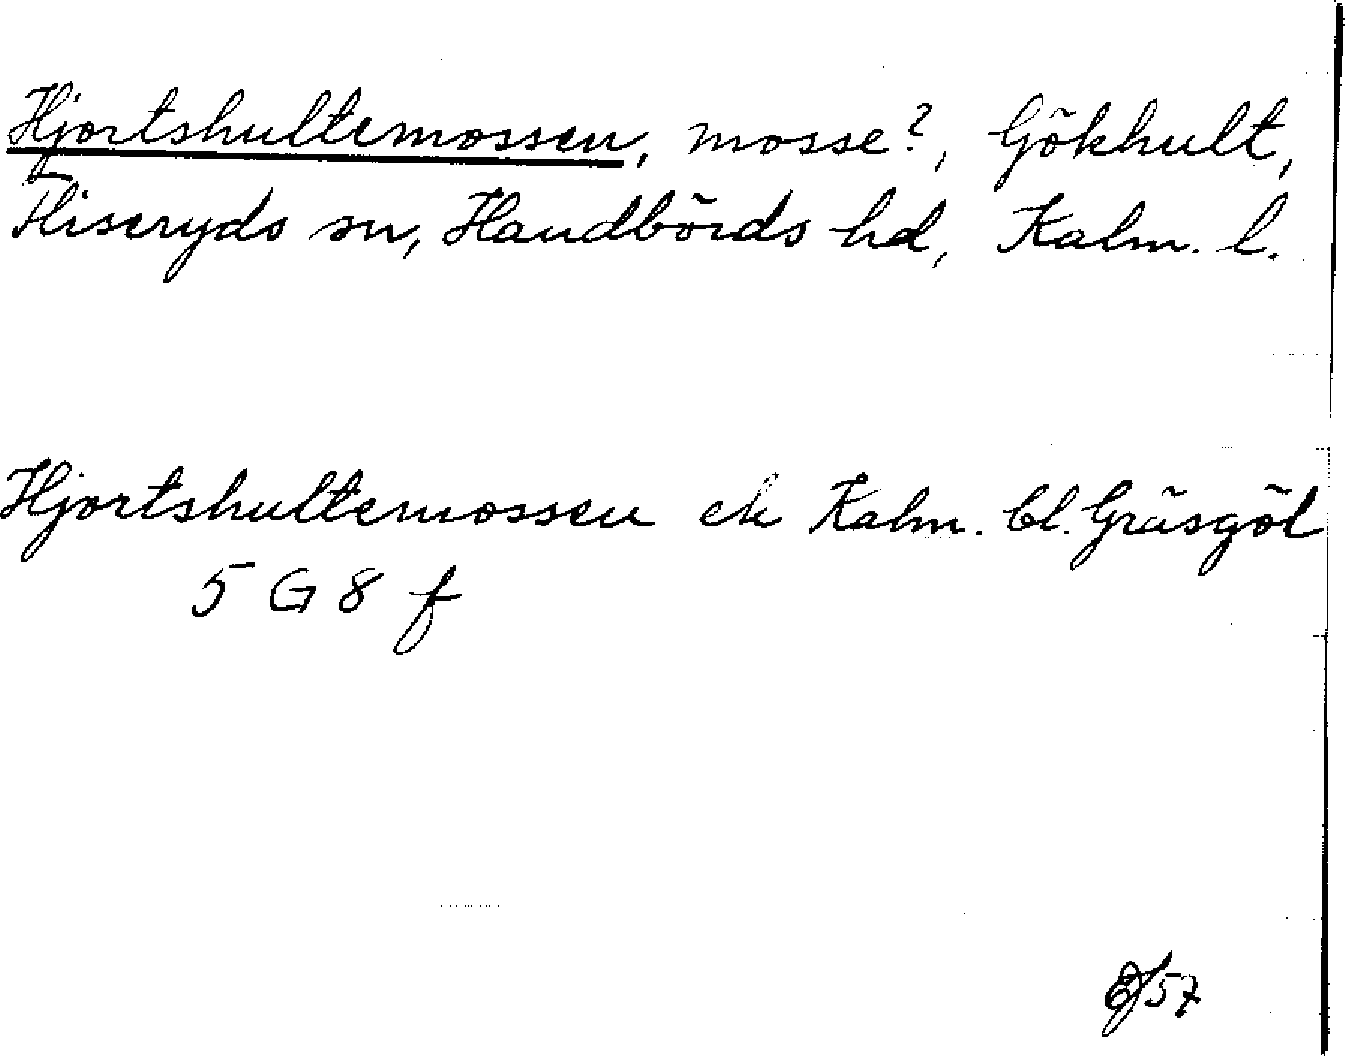 Hjortshultemossen, mosse?, Gökhult,
Fliseryds sn, Handbörds hd, Kalm. l.
Hjortshultemossen ek Kalm. bl. Gräsgöl
5 G 8 f
/57